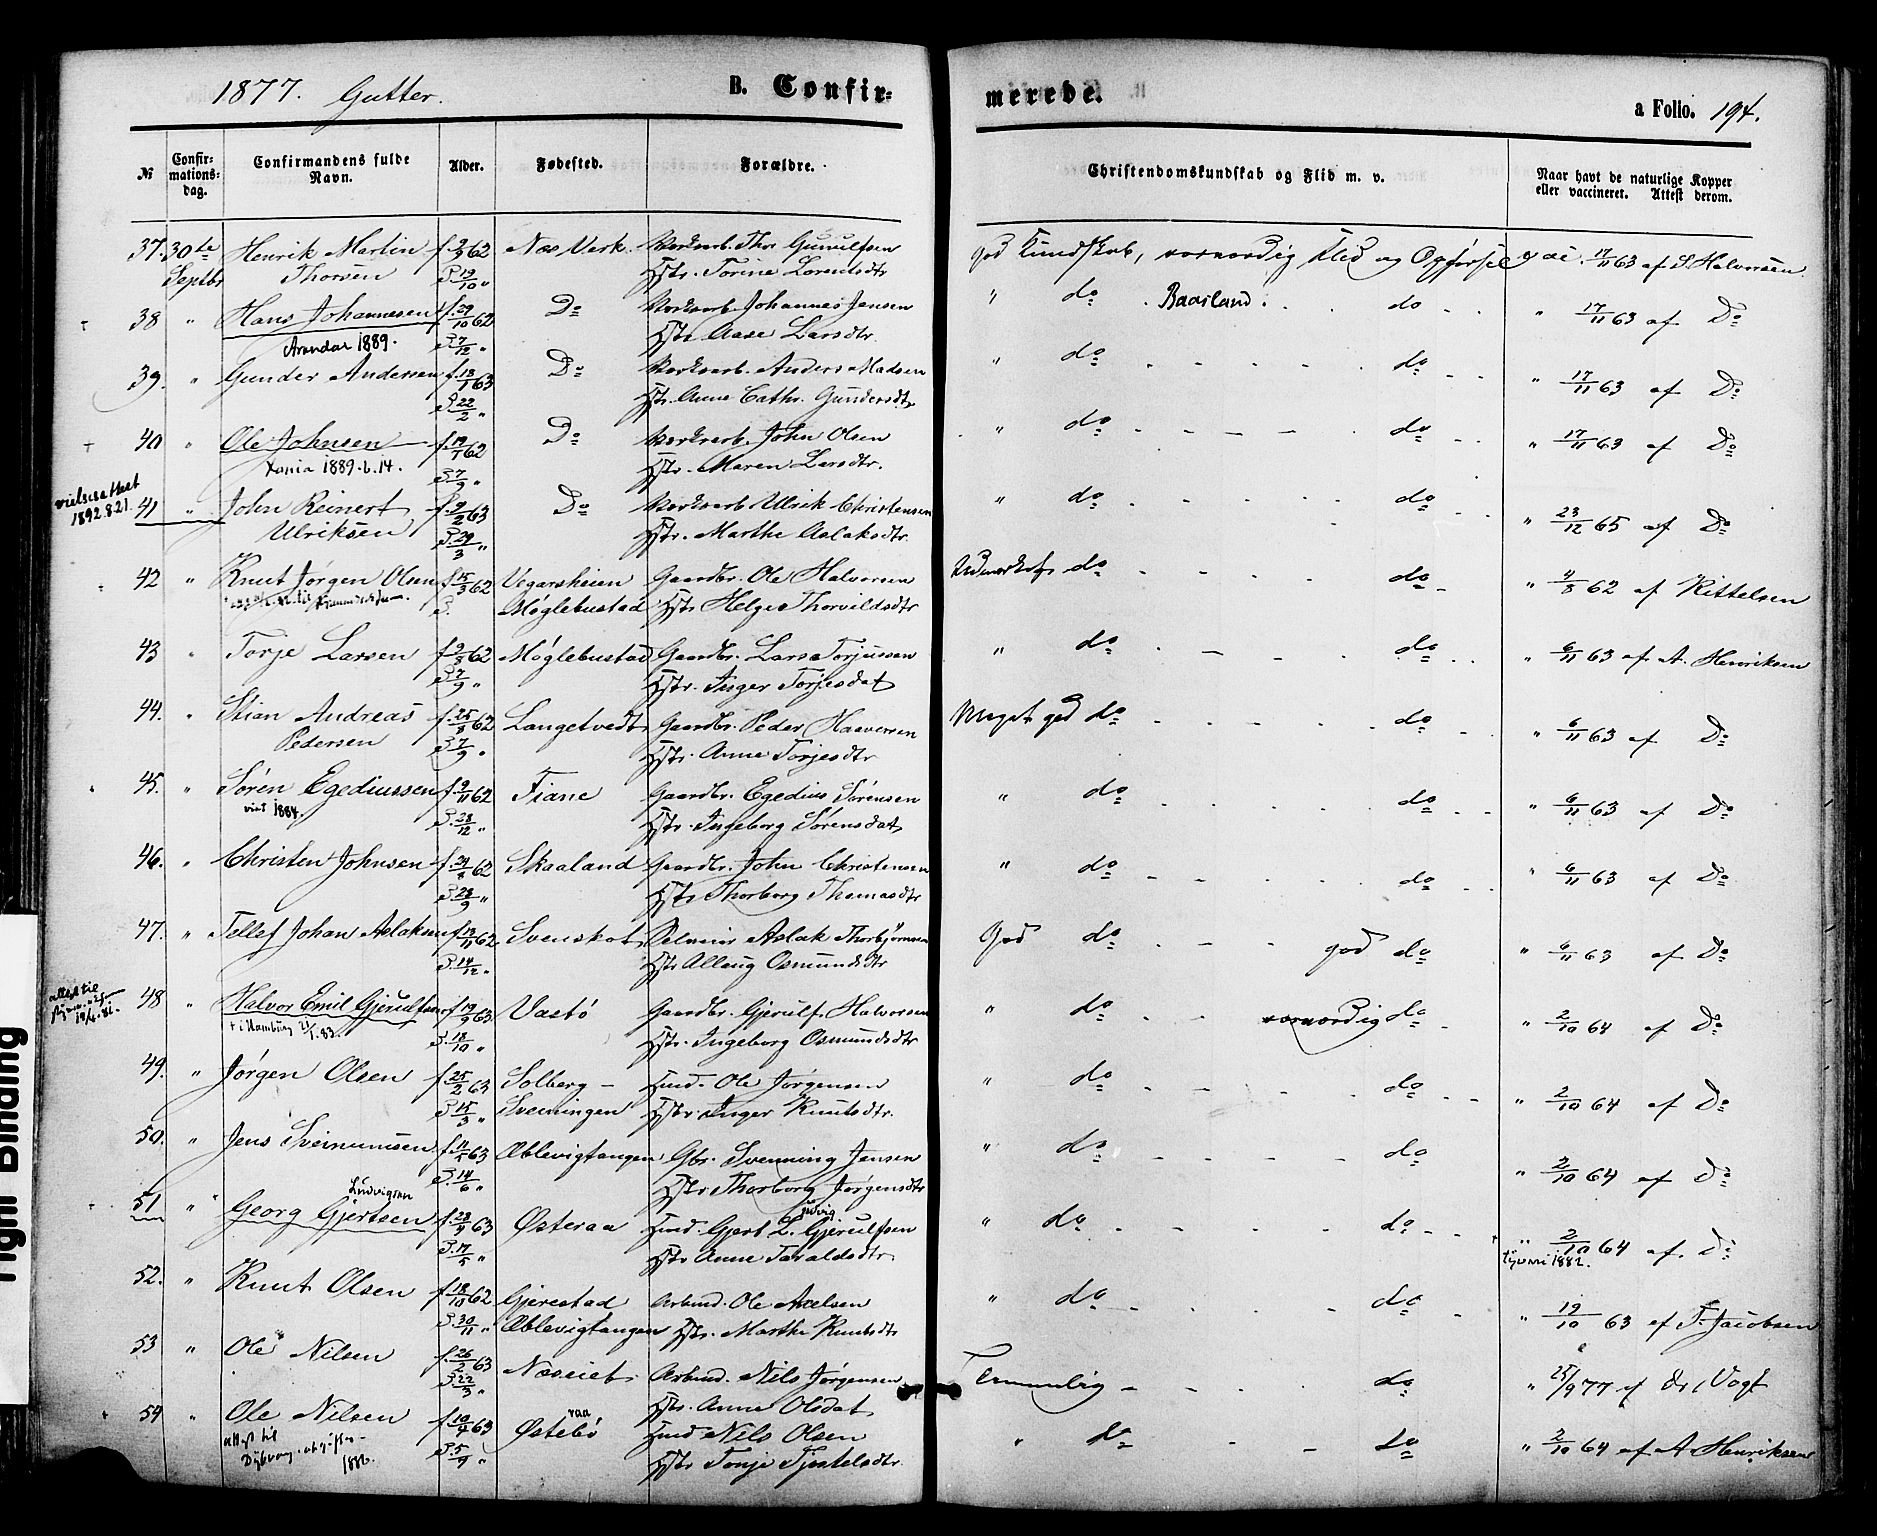 1877. Gutter. B. Confir-
merede. a Folio. 194.
№ Confir-mations-dag. Confirmandens fulde Navn. Alder. Fødested. Forældre. Christendomskundskab og Flid m. v. Naar havt de naturlige Kopper eller vaccineret. Attest derom.
37. 30te Henrik Martin f. 2/9 62 Næs Verk. Verksarb. Thor Gunulfsen God Kundskab, værdig Flid og Opførsel vac. 17/11 63 af S. Halvorsen
Septbr Thorsen D. 19/10 " Hstr. Torine Lorentsdtr
38 " Hans Johannesen f. 29/10 62 Do Verksarb. Johannes Jensen " do Baasland. do " 17/11 63 af Do
Arendal 1889. D. 7/12 " Hstr Aase Larsdtr.
39. " Gunder Andersen f. 18/1 63 Do Verksarb. Anders Madsen " do do " 17/11 63 af Do
D. 22/2 " Hstr. Anne Cathr. Gundersdtr
40 " Ole Johnsen f. 19/1 62 Do Verksarb. John Olsen " do do " 17/11 63 af Do
1889.6.14. D. 7/9 " Hstr. Maren Larsdtr.
vielsesattest 1892.8.21.
41 " John Reinert f. 9/2 63 Do Verksarb Ulrik Christensen " do do " 23/12 65 af Do
Ulriksen D. 29/3 " Hstr. Marthe Aslaksdtr
42 " Knut Jørgen Olsen f. 15/3 62 Vegarsheien Gaardbr. Ole Halvorsen Udmærket do do " 4/8 62 af Kittelsen
D. Møglebustad Hstr Helge Thorvildsdtr
43 " Torje Larsen f. 9/8 62 Møglebustad Gaardbr. Lars Torjussen " do do " 6/11 63 af A. Henriksen
D. 7/9 " Hstr. Inger Torjesdat
44. " Stian Andreas f. 25/8 62 Langetvedt Gaardbr. Peder Haaversen Meget god do do " 6/11 63 af Do
Pedersen D. 7/9 " Hstr. Anne Torjesdtr
45. " Søren Egediussen f. 9/11 62 Fiane Gaardbr. Egedius Sørensen " do do " 6/11 63 af Do
viet 1884. D. 28/12 " Hstr. Ingeborg Sørensdat
46. " Christen Johnsen f. 29/8 62 Skaaland Gaardbr. John Christensen " do do " 6/11 63 af Do
D. 28/9 " Hstr Thorborg Thomasdtr
47. " Tellef Johan Aslaksen f. 13/11 62 Svenskot Aslak Thorbjørnsen God do god do " 6/11 63 af Do
D. 14/12 " Hstr Allaug Osmundsdtr
48 " Halvor Emil Gjerulfsen f. 19/9 63 Vastø Gaardbr. Gjerulf Halvorsen " do værdig do " 2/10 64 af Do
+ i Hamburg 21/1.83. D. 18/10 " Hstr. Ingeborg Osmundsdtr
49. " Jørgen Olsen f. 25/2 63 Solberg – Husmd. Ole Jørgensen " do do " 2/10 64 af Do
D. 15/3 " Sveiningen Hstr. Inger Knutsdtr.
50. " Jens Sveinunsen f. 11/5 63 Æblevigtangen Gbr. Svenning Jensen " do do " 2/10 64 af Do
D. 14/6 " Hstr Thorborg Jørgensdtr
Ludvigsen udvig
51 " Georg Gjertsen f. 23/4 63 Østeraa Husmd. Gjert L. Gjerulfsen " do do " 2/10 64 af. Do
D. 17/5 " Hstr Anne Taraldsdtr. 1882.
52. " Knut Olsen f. 18/10 62 Gjerestad Arbmd. Ole Axelsen " do do " 19/10 63 af T. Jacobsen
D. 30/11 " Æblevigtangen Hstr. Marthe Knutsdtr
53 " Ole Nilsen f. 26/2 63 Næseiet Arbmd. Nils Jørgensen Temmelig do " 25/9 77 af Dr. Vogt
D. 22/3 " Hstr. Anne Olsdat
raa
54 " Ole Nilsen f. 10/4 63 Østebø Husmd Nils Olsen " do do " 2/10 64 af A Henriksen
attest til Dybvaag D. 5/9 " Hstr Tonje Tjostelsdtr.
1886.
Tight Binding